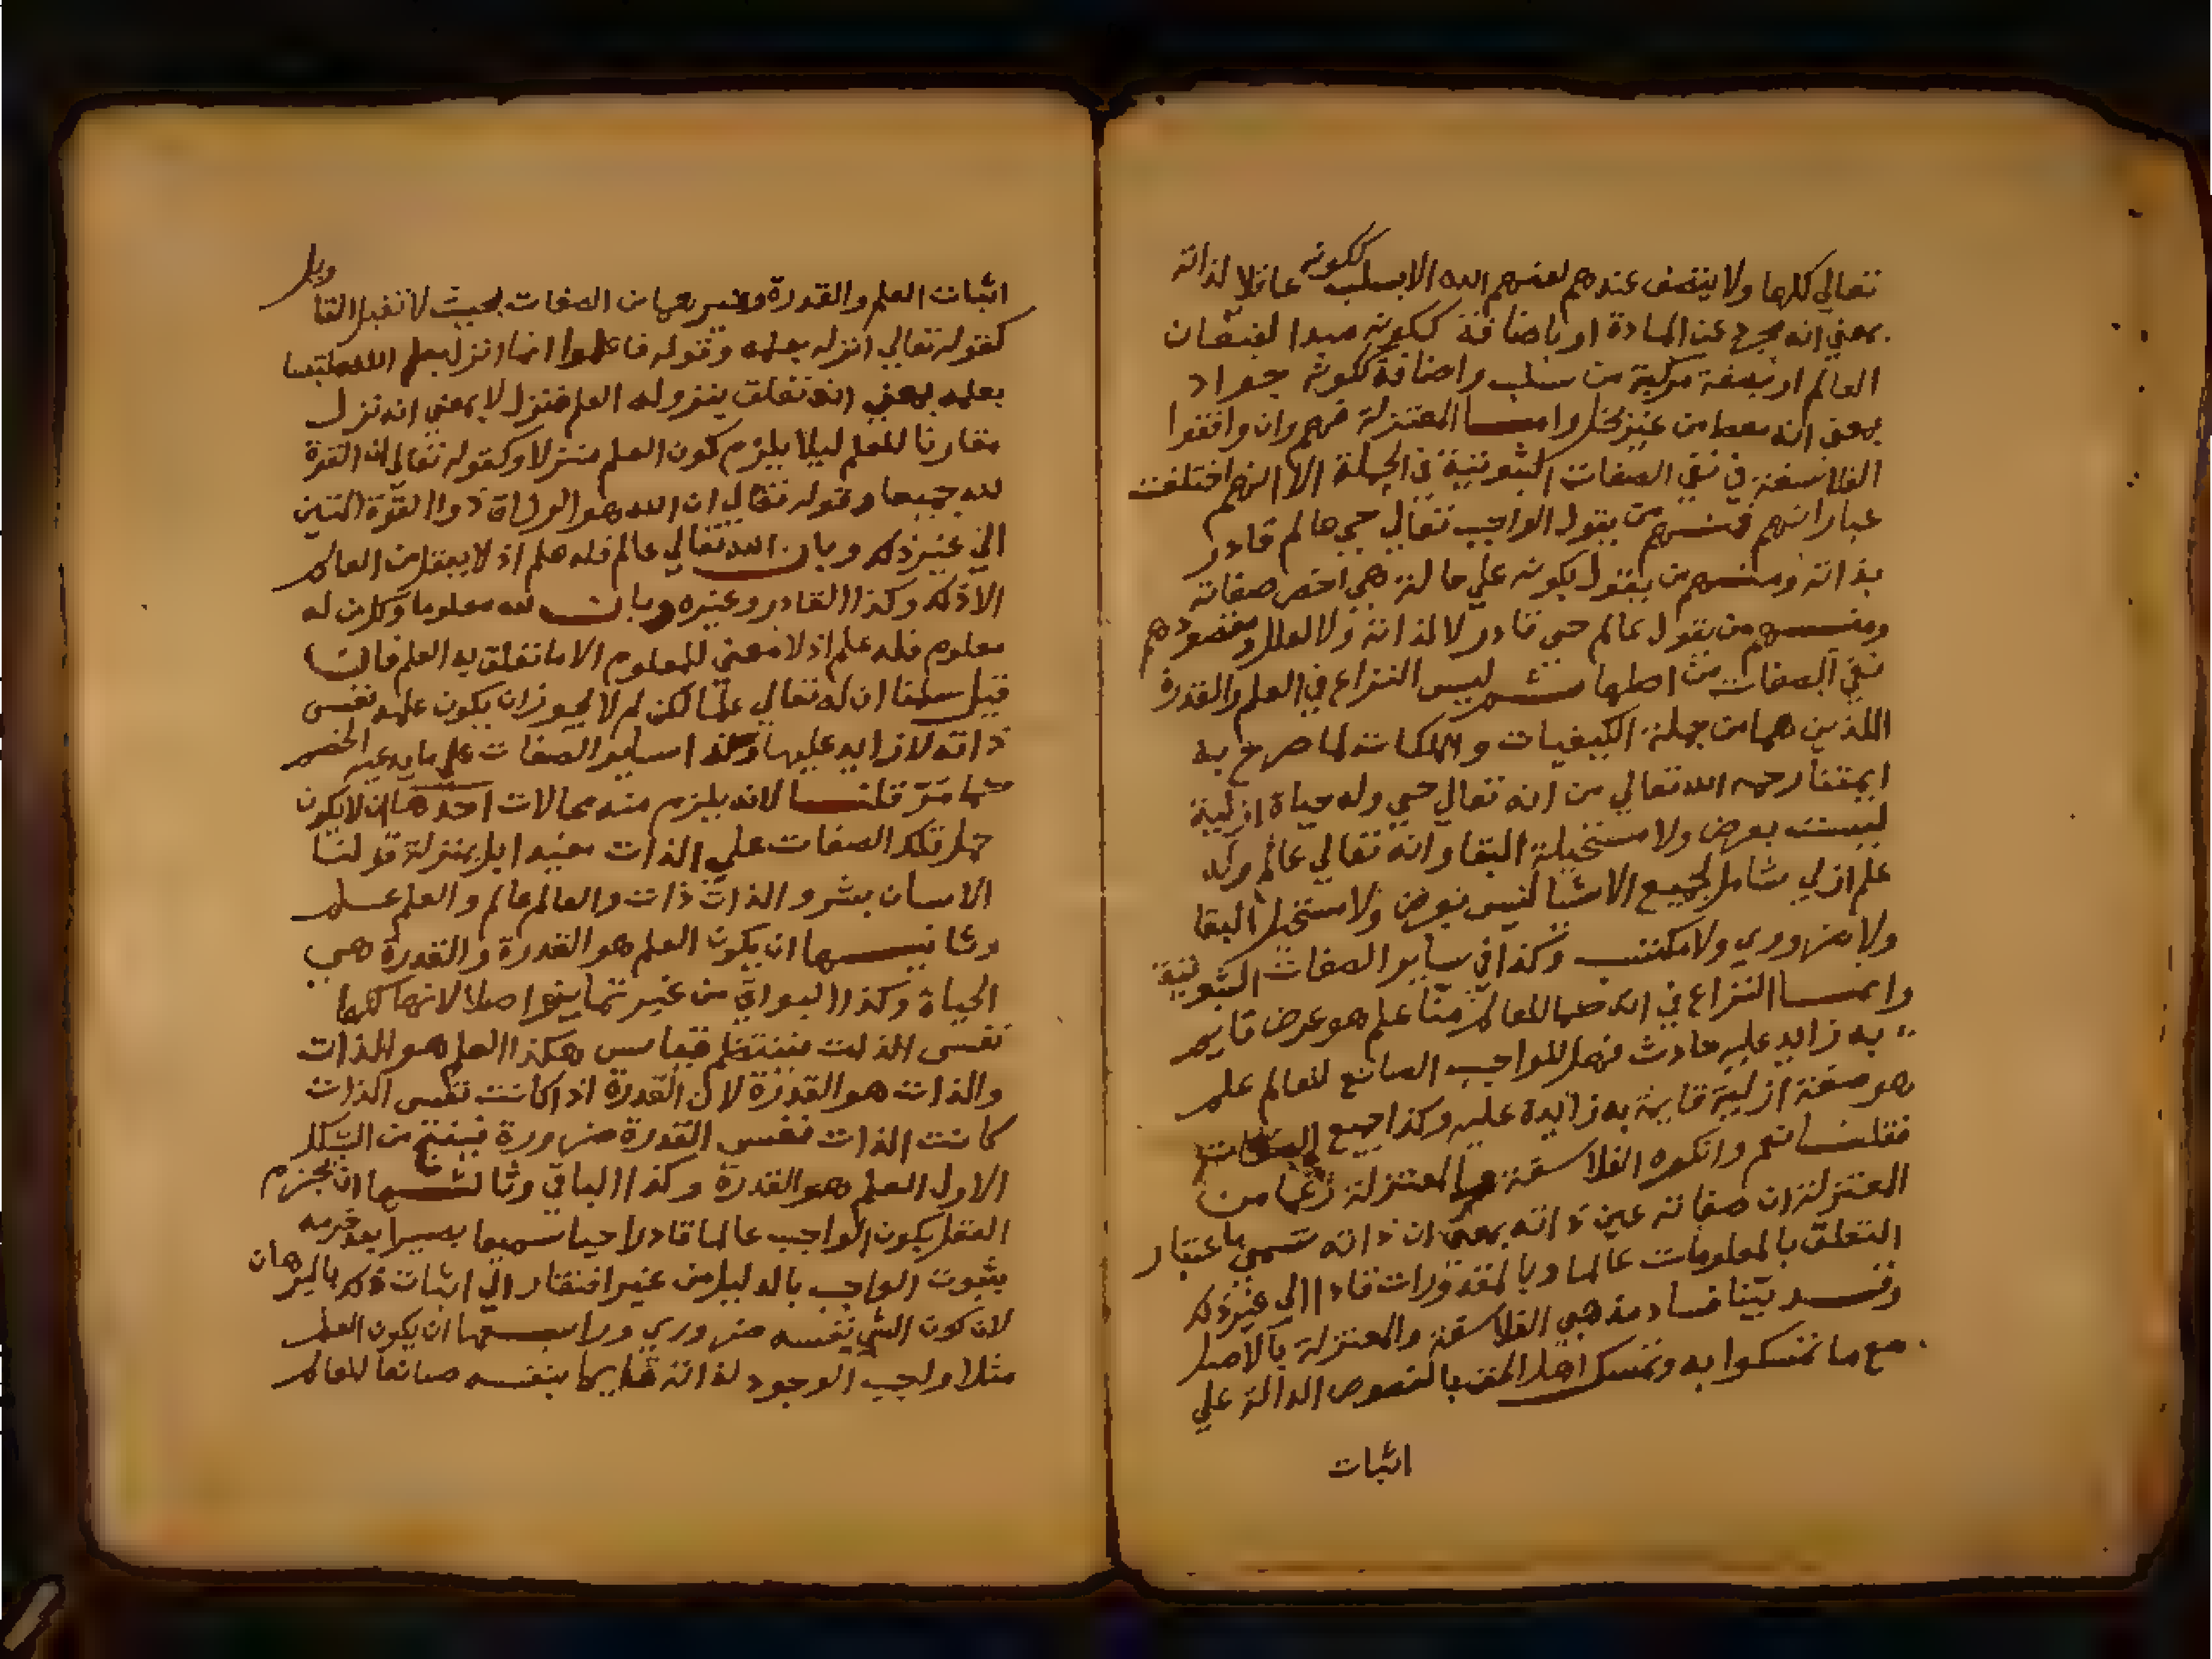 تعالي كلها ولا يتصف عندهم لعنهم الله الا بسلب ككونه عاقلا لذاته
بمعني انه مجرد عن المادة او باضافة ككونه مبدا لفيضان
العالم او بصفة مركبة من سلب واضافة ككونه جواد
بمعني انه معط من غير بخل وامــا المعتزلة فهم وان وافقوا
الفلاسفة في نفي الصفات الثبوتية في الجملة الا انهم اختلفت
عباراتهم فمنــهم من يقول الواجب تعالي حي عالم قادر
بذاته ومنهم من يقول بكونه علي حالة هي اخص صفاته
ومنــهم من يقول عالم حي قادر لا لذاته ولا لعلل ومقصودهم
نفي الصفات من اصلها ثــم ليس النزاع في العلم والقدرة
اللذين هما من جملة الكيفيات والملكات لما صرح به
ايمتنا رحمه الله تعالي من انه تعالي حي وله حياة ازلية
ليست بعرض ولا مستحيلة البقا وانه تعالي عالم وله
علم ازلي شامل لجميع الاشيا ليس بعرض ولا مستحيل البقا
ولا بضروري ولا مكتسب وكذا في ساير الصفات الثبوتية
وانمــا النزاع في انه كما للعالم منا علم هو عرض قايم
به زايد عليه حادث فهل للواجب الصانع للعالم علم
هو صفة ازلية قايمة به زايدة عليه وكذا جميع الصفات
فقلنــا نعم وانكره الفلاسفة والمعتزلة زعما من
المعتزلة ان صفاته عين ذاته بمعني ان ذاته تسمي باعتبار
التعلق بالمعلومات عالما وبالمقدورات قادرا الي غير ذلك
وقــد بينا فساد مذهبي الفلاسفة والمعتزلة بالاصل
مع ما تمسكوا به وتمسك اهل الحق بالنصوص الدالة علي
اثبات
اثبات العلم والقدرة وغيرهما من الصفات بحيث لا تقبل التاويل
كقوله تعالي انزله بعلمه وقوله فاعلموا انما انزل بعلم الله ملتبسا
بعلمه بمعني انه تعلق بنزوله العلم فنزل لا بمعني انه نزل
مقارنا للعلم ليلا يلزم كون العلم منزلا وكقوله تعالي ان القوة
لله جميعا وقوله تعالي ان الله هو الرزاق ذوا القوة المتين
الي غير ذلك وبان الله تعالي عالم فله علم اذ لا يعقل من العالم
الا ذلك وكذا القادر وغيره وبان لله معلوما وكل من له
معلوم فله علم اذ لا معني للمعلوم الا ما تعلق به العلم فان
قيل سلمنا ان له تعالي علما لكن لم لا يجوز ان يكون علمه نفس
ذاته لا زايد عليها وكذا ساير الصفات علي ما يدعيه الخصم
كما مر قلنــا لانه يلزم منه محالات احدها ان لا يكون
حمل تلك الصفات علي الذات مفيدا بل بمنزلة قولنا
الانسان بشر و الذات ذات والعالم عالم والعلم علم
وثانيــها ان يكون العلم هو القدرة والقدرة هي
الحياة وكذا البواقي من غير تمايز اصلا لانها كلها
نفس الذات فينتظم قياس هكذا العلم هو الذات
والذات هو القدرة لان القدرة اذا كانت نفس الذات
كانت الذات نفس القدرة ضرورة فينتج من الشكل
الاول العلم هو القدرة وكذا الباقي وثالثــها ان يجزم
العقل بكون الواجب عالما قادرا حيا سميعا بصيرا بعد جزمه
بثبوت الواجب بالدليل من غير افتقار الي اثبات ذلك بالبرهان
لان كون الشي نفسه ضروري ورابعــها ان يكون العلم
مثلا واجب الوجود لذاته قايما بنفسه صانعا للعالم